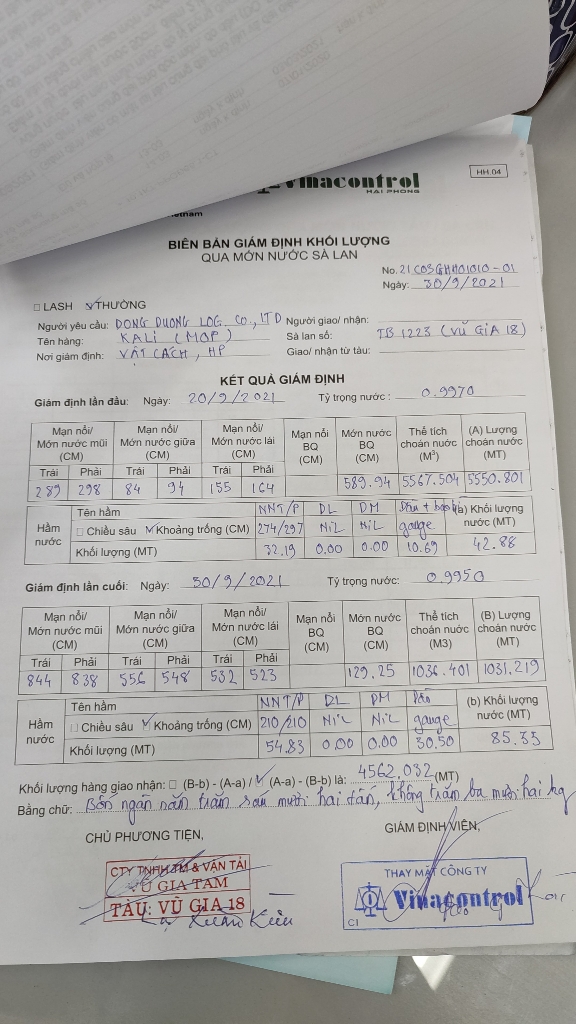 Vinacontrol
HAI PHONG
HH.04
BIÊN BẢN GIÁM ĐỊNH KHỐI LƯỢNG
QUA MỚN NƯỚC SÀ LAN
No. 21C03GHH01010-01
Ngày: 30/9/2021
LASH THƯỜNG
Người yêu cầu: DONG DUONG LOG CO., LTD Người giao/ nhận:
Tên hàng: KALI (MOP) Sà lan số: TB 1223 (VŨ GIA 18)
Nơi giám định: VẬT CÁCH, HP Giao/ nhận từ tàu:
KẾT QUẢ GIÁM ĐỊNH
Giám định lần đầu: Ngày: 20/9/2021 Tỷ trọng nước : 0.9970
Mạn nổi/ Mớn nước mũi (CM) Mạn nổi/ Mớn nước giữa (CM) Mạn nổi/ Mớn nước lái (CM) Mạn nổi BQ (CM) Mớn nước BQ (CM) Thể tích choán nước (M³) (A) Lượng choán nước (MT)
Trái Phải Trái Phải Trái Phải
289 298 84 94 155 164 589.94 5567.504 5550.801
Hầm nước Tên hầm NNT/P DL DM gauge (a) Khối lượng nước (MT)
Chiều sâu Khoảng trống (CM) 274/297 NIL NIL
Khối lượng (MT) 32.19 0.00 0.00 10.69 42.88
Giám định lần cuối: Ngày: 30/9/2021 Tỷ trọng nước: 0.9950
Mạn nổi/ Mớn nước mũi (CM) Mạn nổi/ Mớn nước giữa (CM) Mạn nổi/ Mớn nước lái (CM) Mạn nổi BQ (CM) Mớn nước BQ (CM) Thể tích choán nước (M3) (B) Lượng choán nước (MT)
Trái Phải Trái Phải Trái Phải
844 838 556 548 532 523 129.25 1036.401 1031.219
Hầm nước Tên hầm NNT/P DL DM gauge (b) Khối lượng nước (MT)
Chiều sâu Khoảng trống (CM) 210/210 NIL NIL
Khối lượng (MT) 54.83 0.00 0.00 30.50 85.33
Khối lượng hàng giao nhận: (B-b) - (A-a) / (A-a) - (B-b) là: 4562.032 (MT)
Bằng chữ: Bốn ngàn năm trăm sáu mươi hai tấn, không trăm ba mươi hai kg
CHỦ PHƯƠNG TIỆN, GIÁM ĐỊNH VIÊN,
CTY TNHH TM & VẬN TẢI
VŨ GIA TAM
TÀU: VŨ GIA 18
THAY MẶT CÔNG TY
Vinacontrol
C1